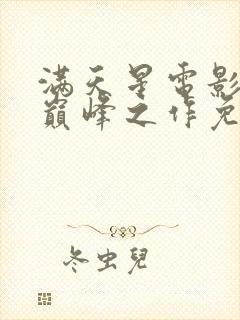 满天星電影
巔峰之作免
冬虫兒